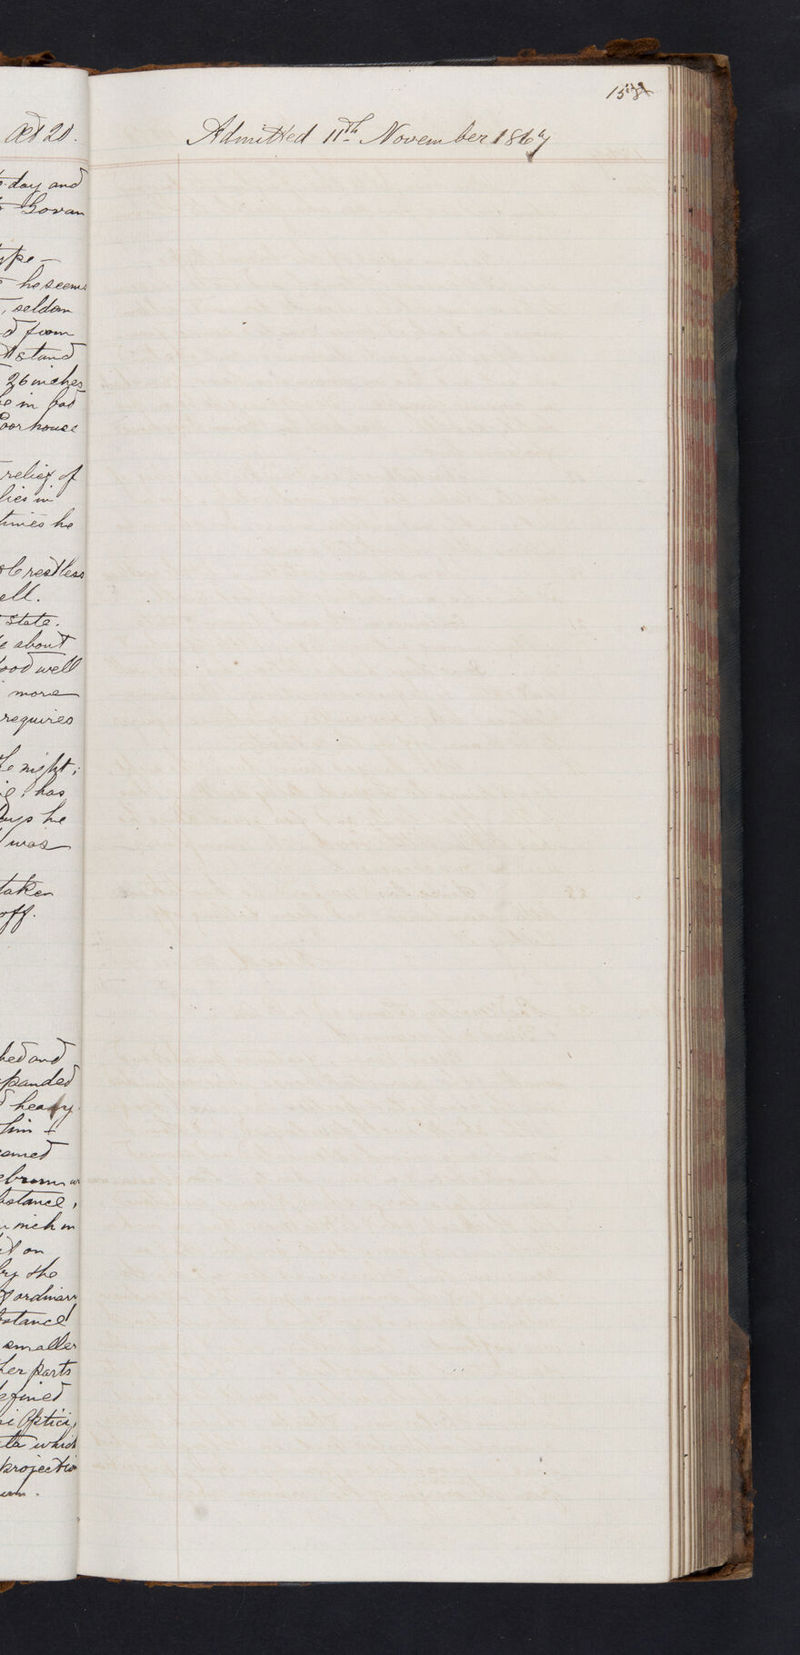 Æt 20.
day and
Govan
type -
he seems
, seldom
from
stand
26 inches
in bad
Poorhouse
relief of
lies in
times he
restless
ell.
state.
about
food well
more
requires
night ;
has
days he
was
taken
off.
bed and
panded
heavy
him +
stance,
inch in
on
by the
ordinary
stance
smaller
her parts
efined
Optici,
ta which
projection
158
Admitted 11th November 1867